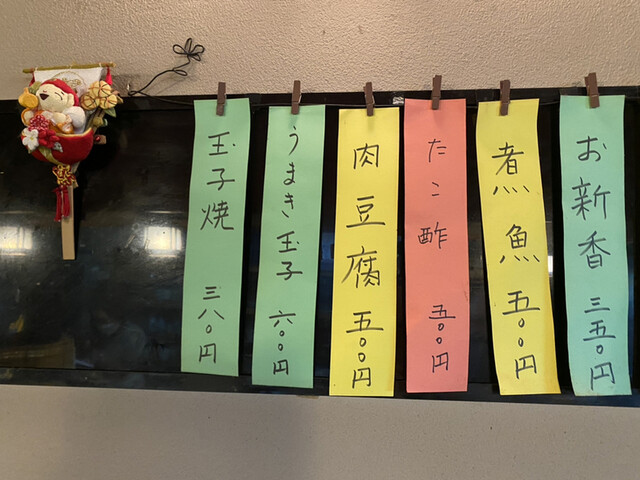 お新香 三五〇円
煮魚 五〇〇円
たこ酢 五〇〇円
肉豆腐 五〇〇円
うまき玉子 六〇〇円
玉子焼 三八〇円